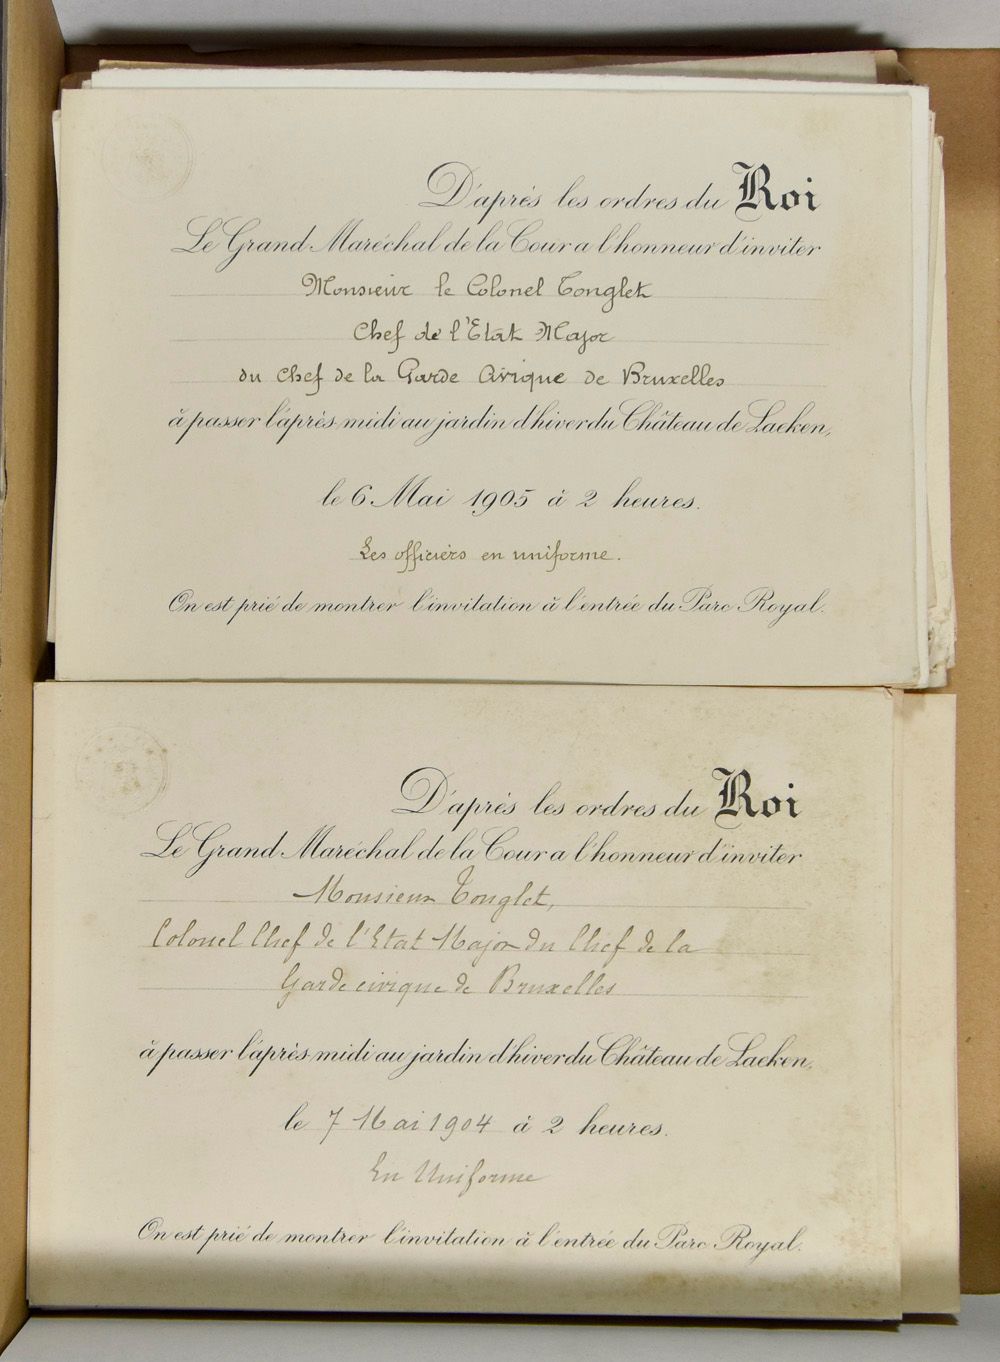 D'après les ordres du Roi
Le Grand Maréchal de la Cour a l'honneur d'inviter
Monsieur le Colonel Tonglet
Chef de l'Etat Major
du Chef de la Garde Civique de Bruxelles
à passer l'après-midi au jardin d'hiver du Château de Laeken,
le 6 Mai 1905 à 2 heures.
Les officiers en uniforme.
On est prié de montrer l'invitation à l'entrée du Parc Royal.
D'après les ordres du Roi
Le Grand Maréchal de la Cour a l'honneur d'inviter
Monsieur Tonglet,
Colonel Chef de l'Etat Major du Chef de la
Garde civique de Bruxelles
à passer l'après-midi au jardin d'hiver du Château de Laeken,
le 7 Mai 1904 à 2 heures.
En Uniforme
On est prié de montrer l'invitation à l'entrée du Parc Royal.